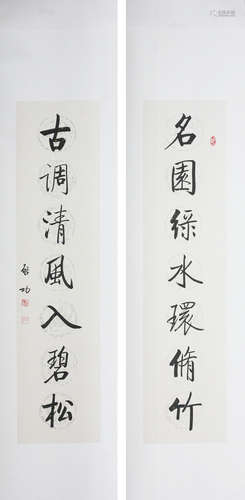 名園綠水環脩竹
古調清風入碧松
啓功